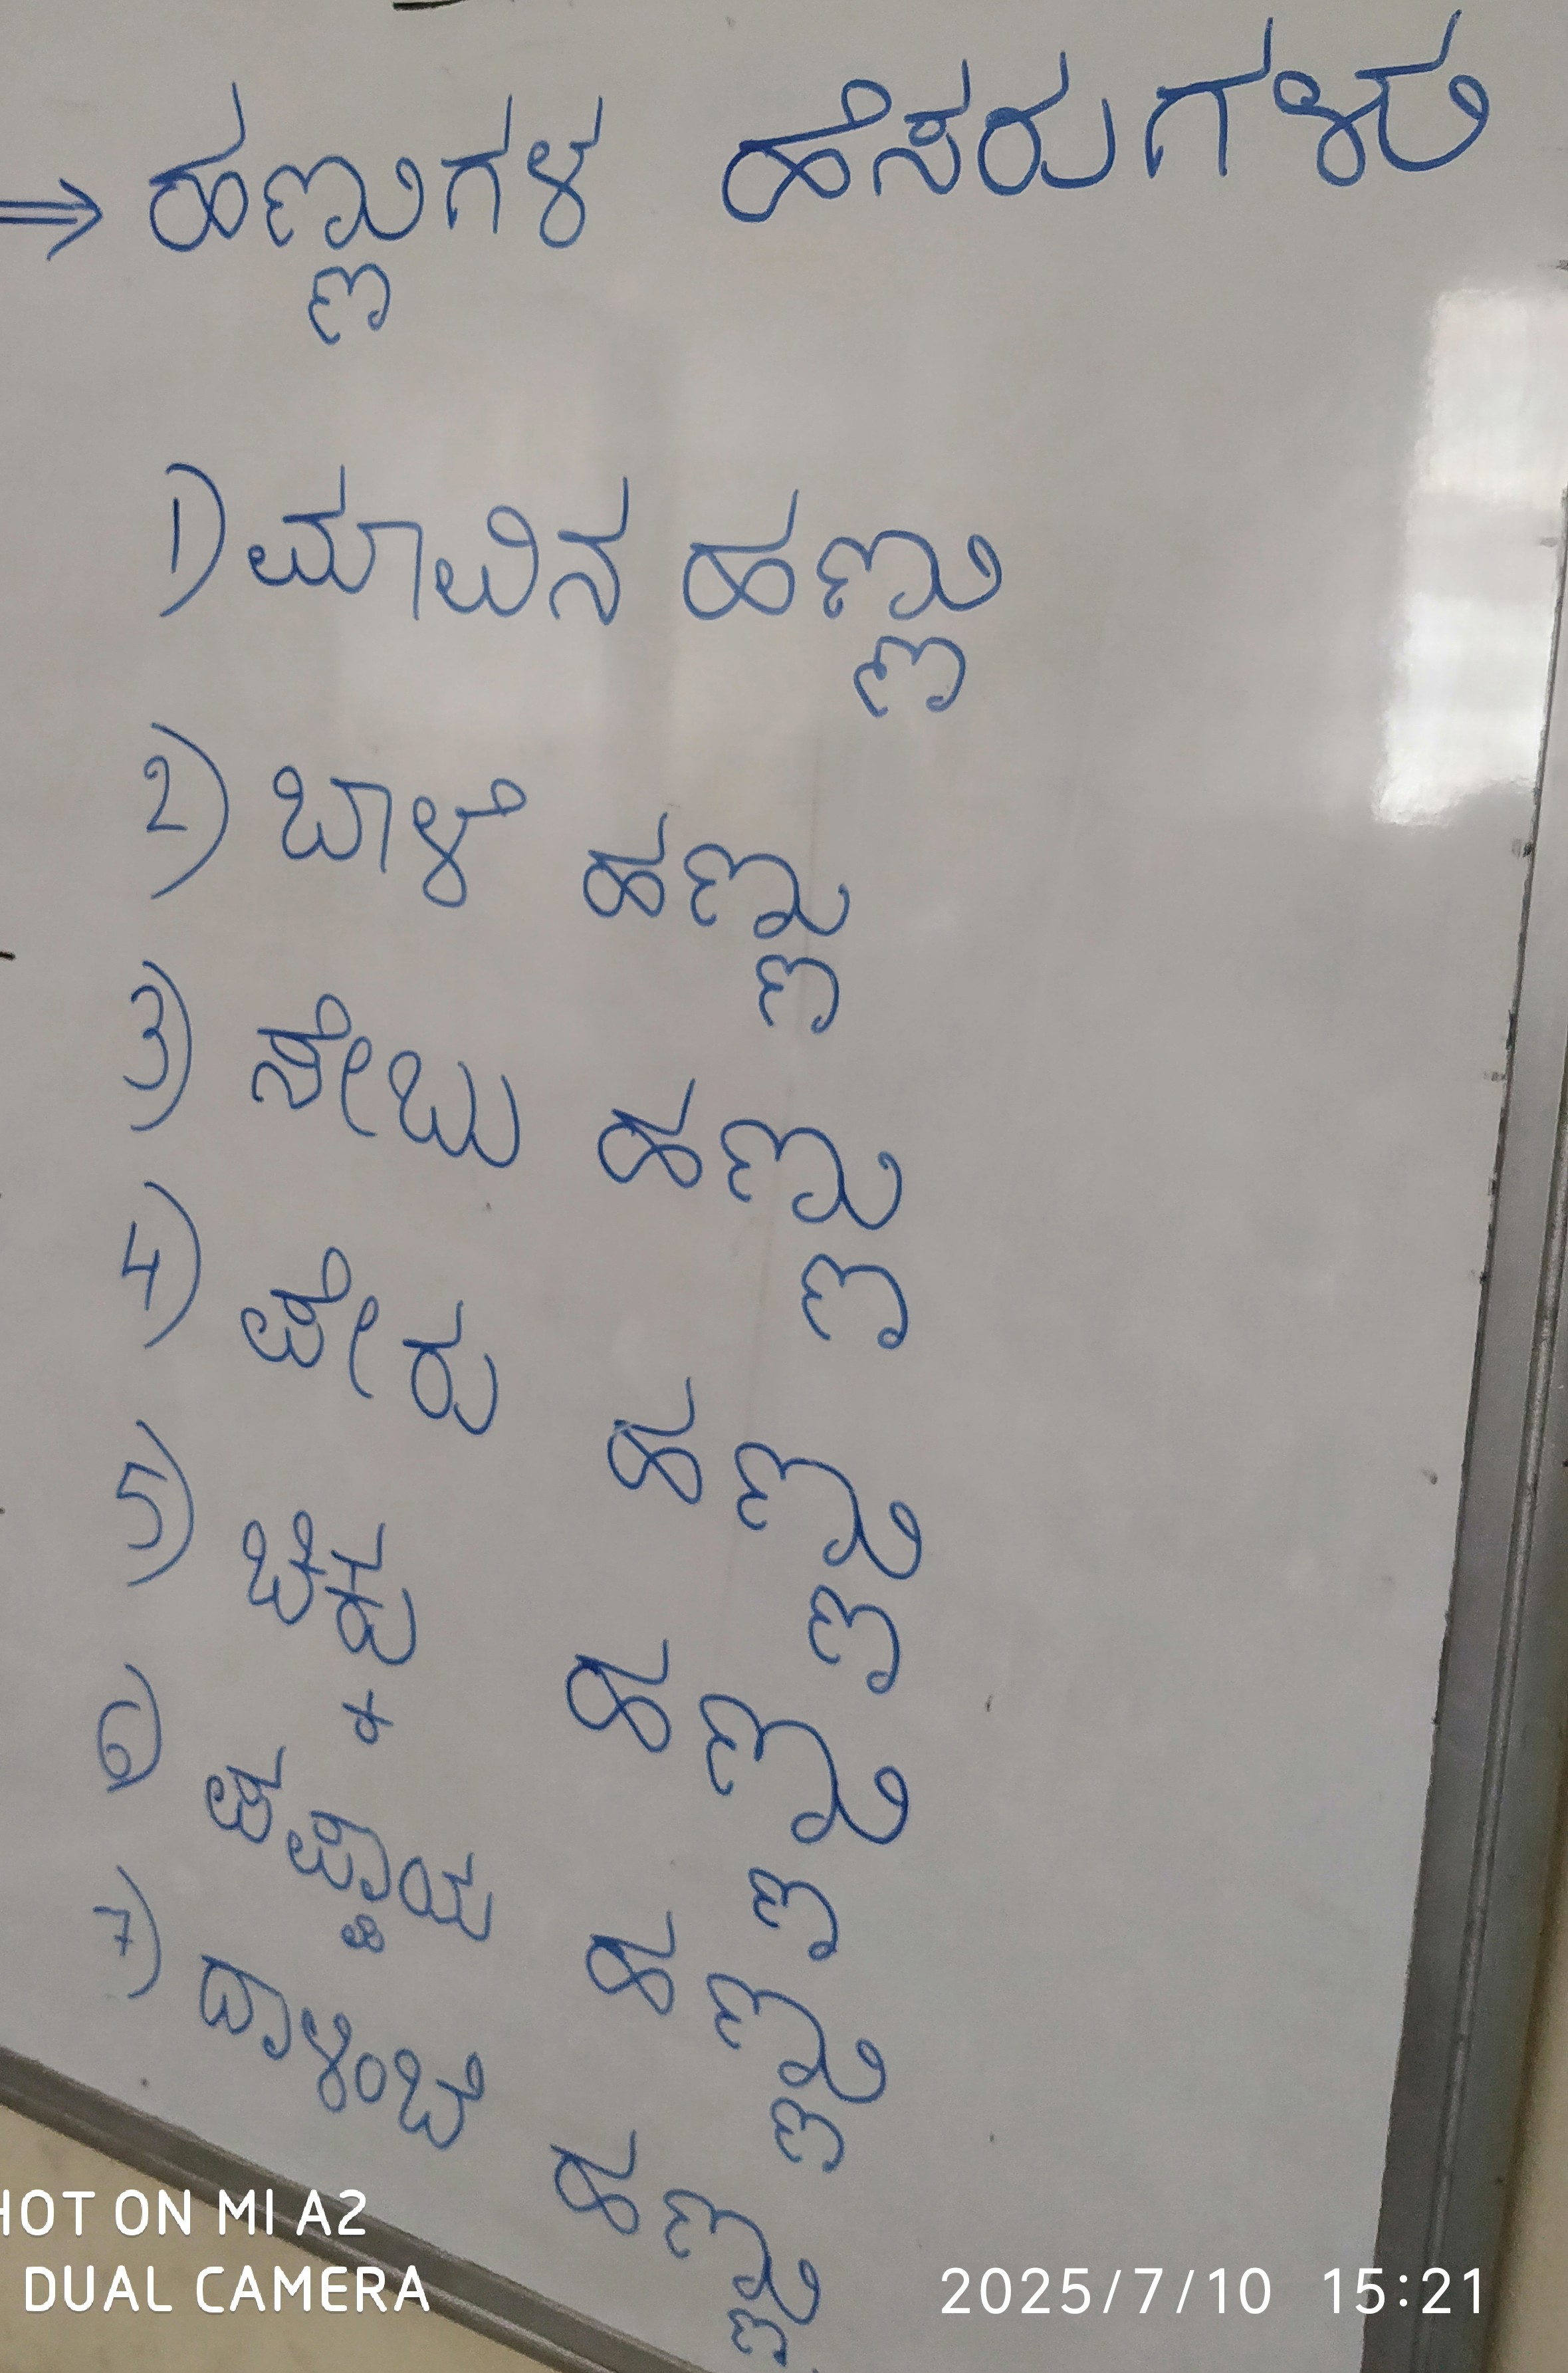 ⇒ ಹಣ್ಣುಗಳ ಹೆಸರುಗಳು
1) ಮಾವಿನ ಹಣ್ಣು
2) ಬಾಳೆ ಹಣ್ಣು
3) ಸೇಬು ಹಣ್ಣು
4) ಪೇರು ಹಣ್ಣು
5) ಚಿಕ್ಕು ಹಣ್ಣು
6) ಪಪ್ಪಾಯ ಹಣ್ಣು
7) ದಾಳಿಂಬೆ ಹಣ್ಣು
HOT ON MI A2
DUAL CAMERA
2025/7/10 15:21